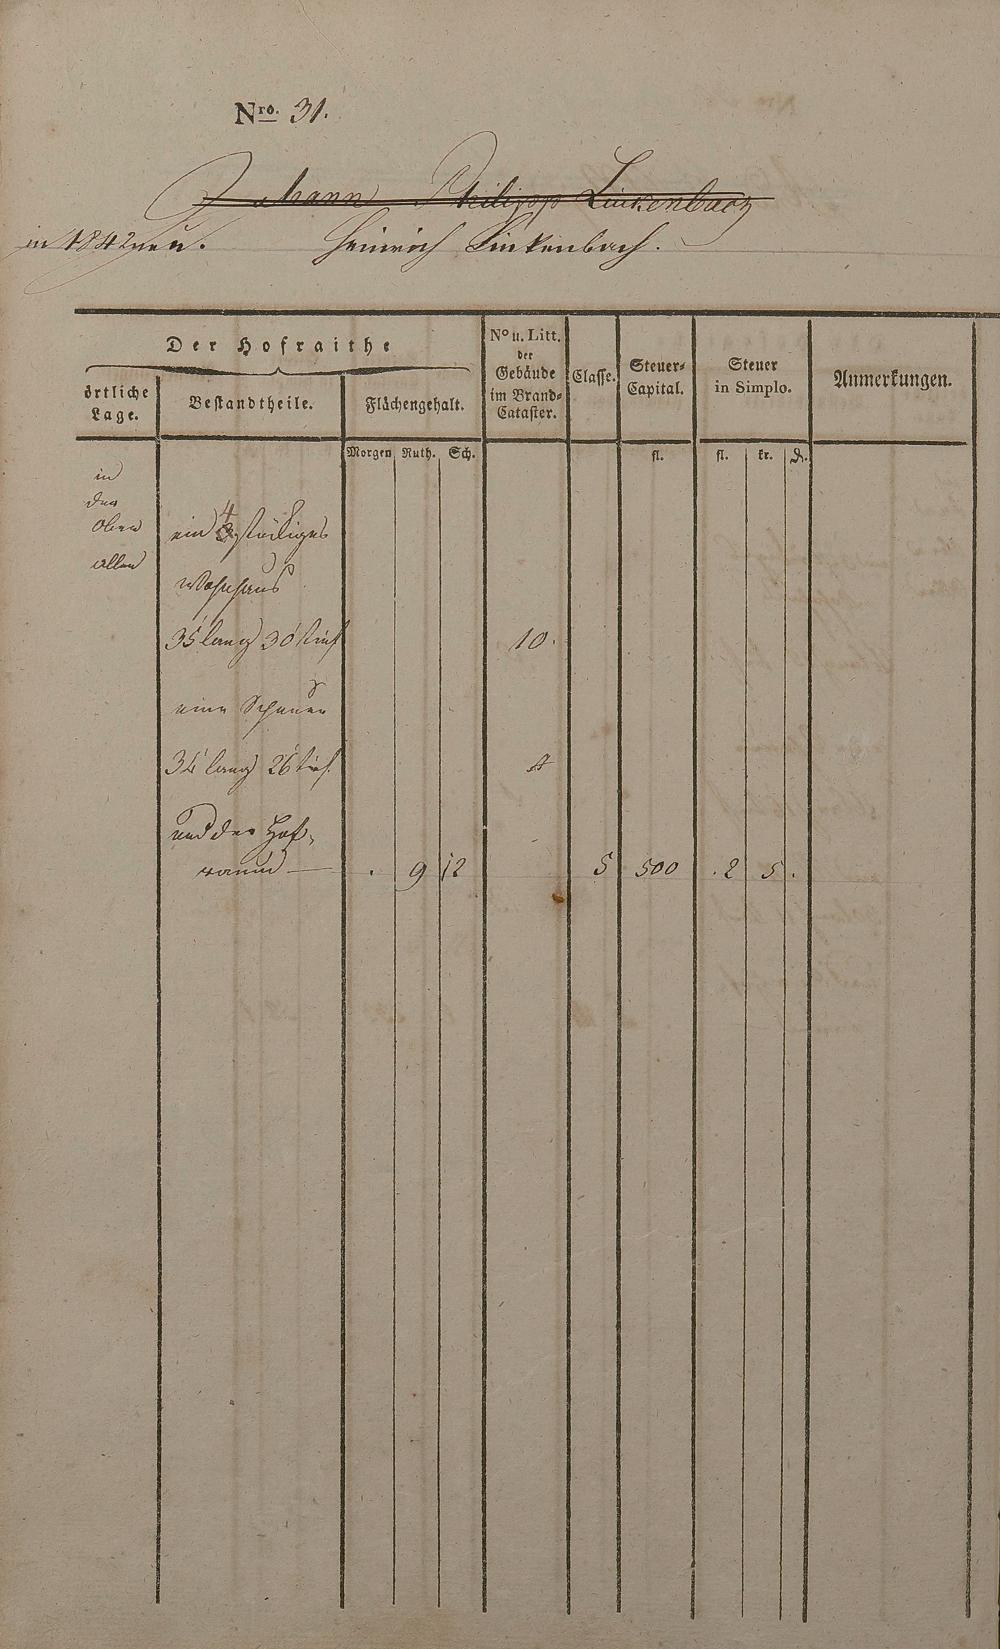 Nro. 31.
Johann Philipp Linkenbach
in 1842 neu. Heinrich Linkenbach.
Der Hofraithe
örtliche Lage.
Bestandtheile.
Flächengehalt.
No u. Litt. der Gebäude im Brand-Cataster.
Classe.
Steuer-Capital.
Steuer in Simplo.
Anmerkungen.
Morgen Ruth. Sch. fl. fl. kr. d.
in
der
Oben
ein 4 stöckiges
Wohnhaus
35' lang 30' tief 10.
eine Scheuer
34' lang 26' tief. A
und der Hof-
raum — . 9 12 5 500 . 2 5 .